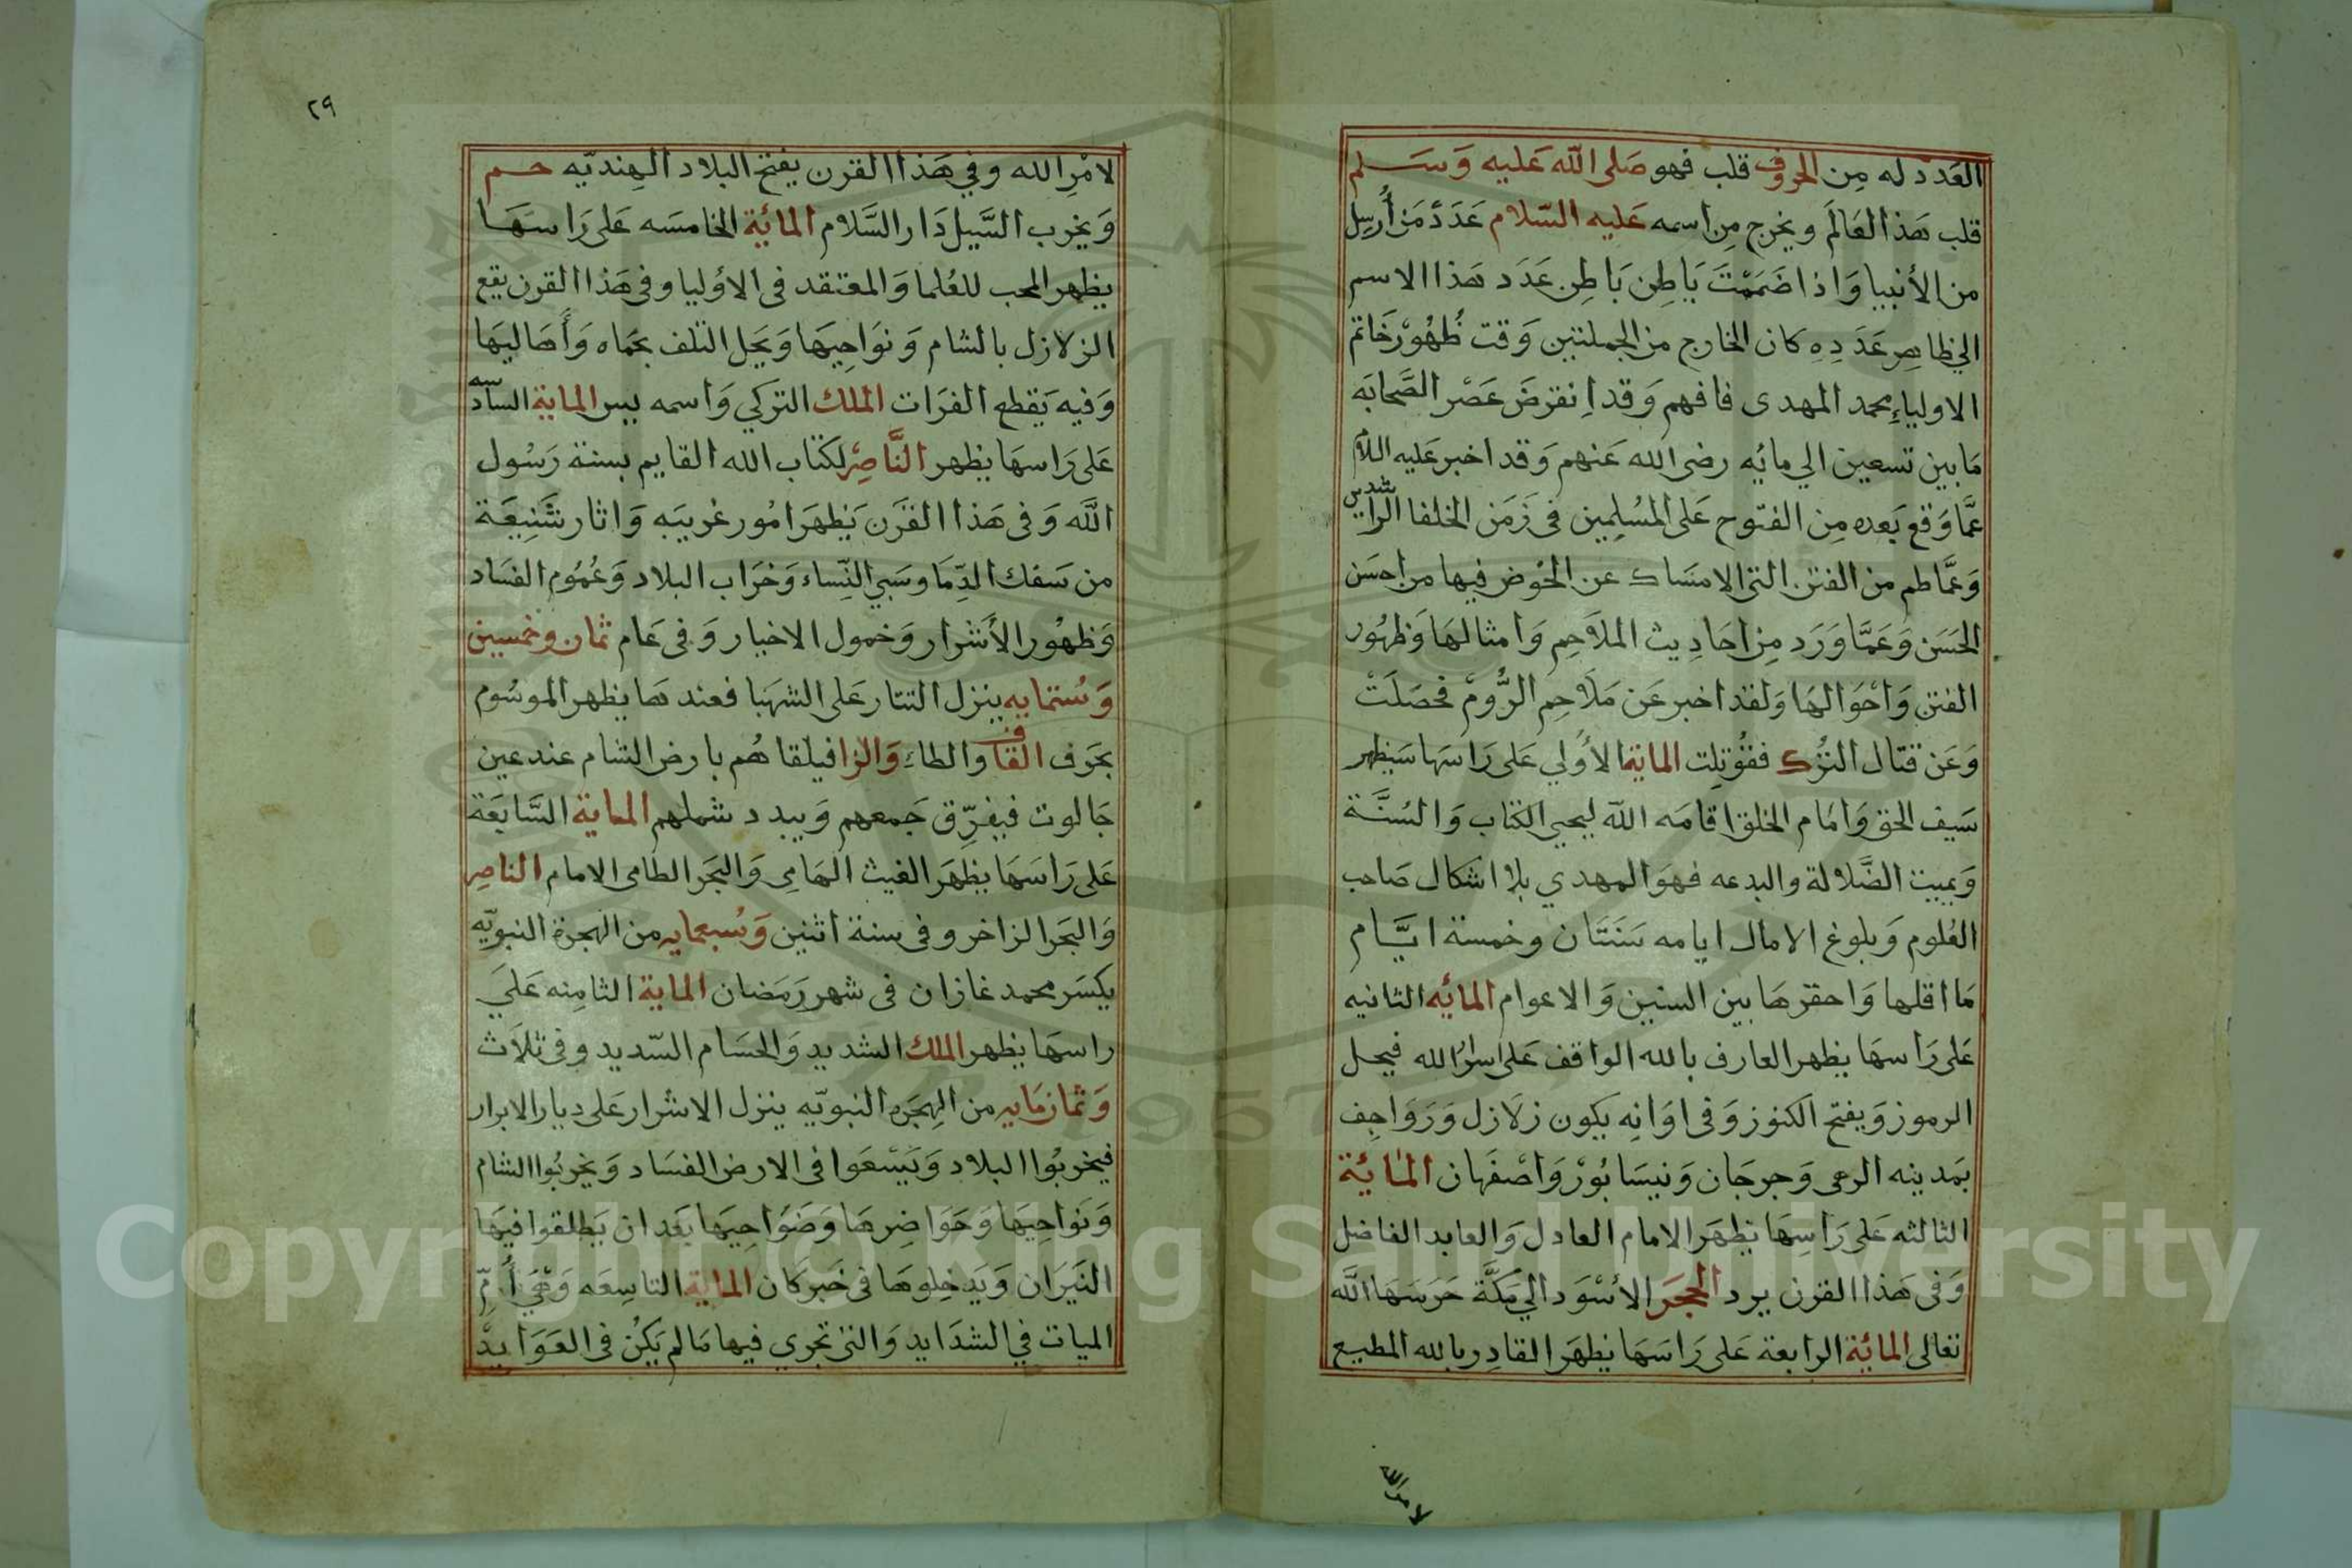 العَدَد له مِن الحروف قلب فهو صَلى الله عَليه وَسَلم
قلب هَذا العَالَم ويخرج مِن اسمه عَليه السّلام عَدَدْ مَن أُرسِل
من الأنبيا وَاذا ضَمَمْتَ بَاطِن بَاطِن عَدَد هَذا الاسم
الي ظاهِر عَدَدِهِ كان الخارج من الجملتين وَقت ظُهُوْر خَاتم
الاولياءِ محمد المهدى فافهم وَقد اِنقرَضَ عَصْر الصَّحابَه
مَا بين تسعين الي مائه رضى الله عَنهم وَقد اخبر عَليه اللام
عمَّا وَقع بَعده مِن الفتوح عَلى المُسلِمِين فى زَمَن الخلفا الراشدين
وَعمَّا طم من الفتن التى الامسَاك عن الخوض فيها من احسَن
الحَسَن وَعَمَّا وَرَد مِن احَادِيث الملاَحِم وَامثالهَا وَظهُور
الفتن وَاحْوَالهَا وَلقد اخبر عَن مَلاَحِم الرُّومْ فحصَلَتْ
وَعَن قتال التُرك فقُوتِلت الماية الأولي عَلى رَاسهَا سَيَظهر
سَيف الحق وَامَام الخلق اقامَه الله ليحيى الكتاب وَالسُنَّة
وَيميت الضَّلالة والبدعه فهوَ المهدي بلا اشكال صَاحب
العُلوم وَبلوغ الامال ايامه سَنَتَان وخمسة ايَّام
مَا اقلها وَاحقرهَا بين السنين وَالاعوام المائه الثانيه
عَلى رَاسهَا يظهر العارف بالله الواقف عَلى اسرار الله فيحل
الرموز وَيفتح الكنوز وَفى اوَانِه يكون زلاَزل وَرَوَاجِف
بمَدينه الرى وَجرجَان وَنيسَابُوْر وَاصْفهَان المائة
الثالثه عَلى رَاسِهَا يَظهَر الامام العادل وَالعابد الفاضل
وَفى هَذا القرن يرد الحجَر الأسْوَد الي مَكَّة حَرسَهَا الله
تعالى المائة الرابعة عَلى رَاسَهَا يظهَر القادِر بالله المطيع
لامر الله
٢٩
لامْرِ الله وفي هَذا القرن يفتح البلاد الهنديّه حم
وَيخرب السَّيل دَار السَّلام المائة الخامسَه عَلى رَاسَهَا
يظهر المحب للعُلما وَالمعتقد فى الاوُليا وفى هَذا القرن يقع
الزلازل بالشام وَنوَاحِيهَا وَيحل التلف بحَماه وَأَهَاليهَا
وَفيه يَقطع الفرَات الملك التركي وَاسمه بيبرس الماية السادسه
عَلى رَاسهَا يظهر النَّاصِر لكتاب الله القايم بسنة رَسُول
الله وَفى هَذا القَرَن يَظهَر امُور غريبَه وَاثار شَنِيعَة
من سَفك الدِّمَا وسَبي النِّسَاء وَخرَاب البلاد وَعُمُوم الفسَاد
وَظهُور الأشرار وَخمول الاخيار وَفى عَام ثمان وخمسين
وَستمايه ينزل التتار عَلى الشهبَا فعندها يظهر الموسُوم
بحَرف القاف والطاء وَالزا فيلقاهُم بارض الشام عند عين
جَالوت فيفرِّق جَمعهم وَيبدد شملهم الماية السَّابعَة
عَلى رَاسَهَا يظهَر الغيث الهَامِى وَالبحَر الطامى الامام الناصِر
وَالبحَر الزاخر وفى سنة اثنين وَسُبعمايه من الهجرة النبويّه
يكسَر محمد غازان فى شهر رَمَضان الماية الثامِنه عَلَي
راسهَا يظهر الملك الشديد وَالحسَام السّديد وفى ثلاَث
وَثمانمَايه من الهِجَرة النبويّه ينزل الاشرار عَلى ديار الابرار
فيخربُوا البلاد وَيَسْعَوا فى الارض الفسَاد وَيخربُوا الشام
وَنوَاحِيهَا وَحَوَاضِرهَا وَضَوَاحِيهَا بَعَد ان يَطلقوا فيهَا
النيَرَان وَيَدخلوهَا فى خَبَر كَان الماية التاسِعَه وَهْيَ أُمّ
الميات في الشدَايد وَالتى تجرِي فيها مَا لم يَكُن فى العَوَايدْ